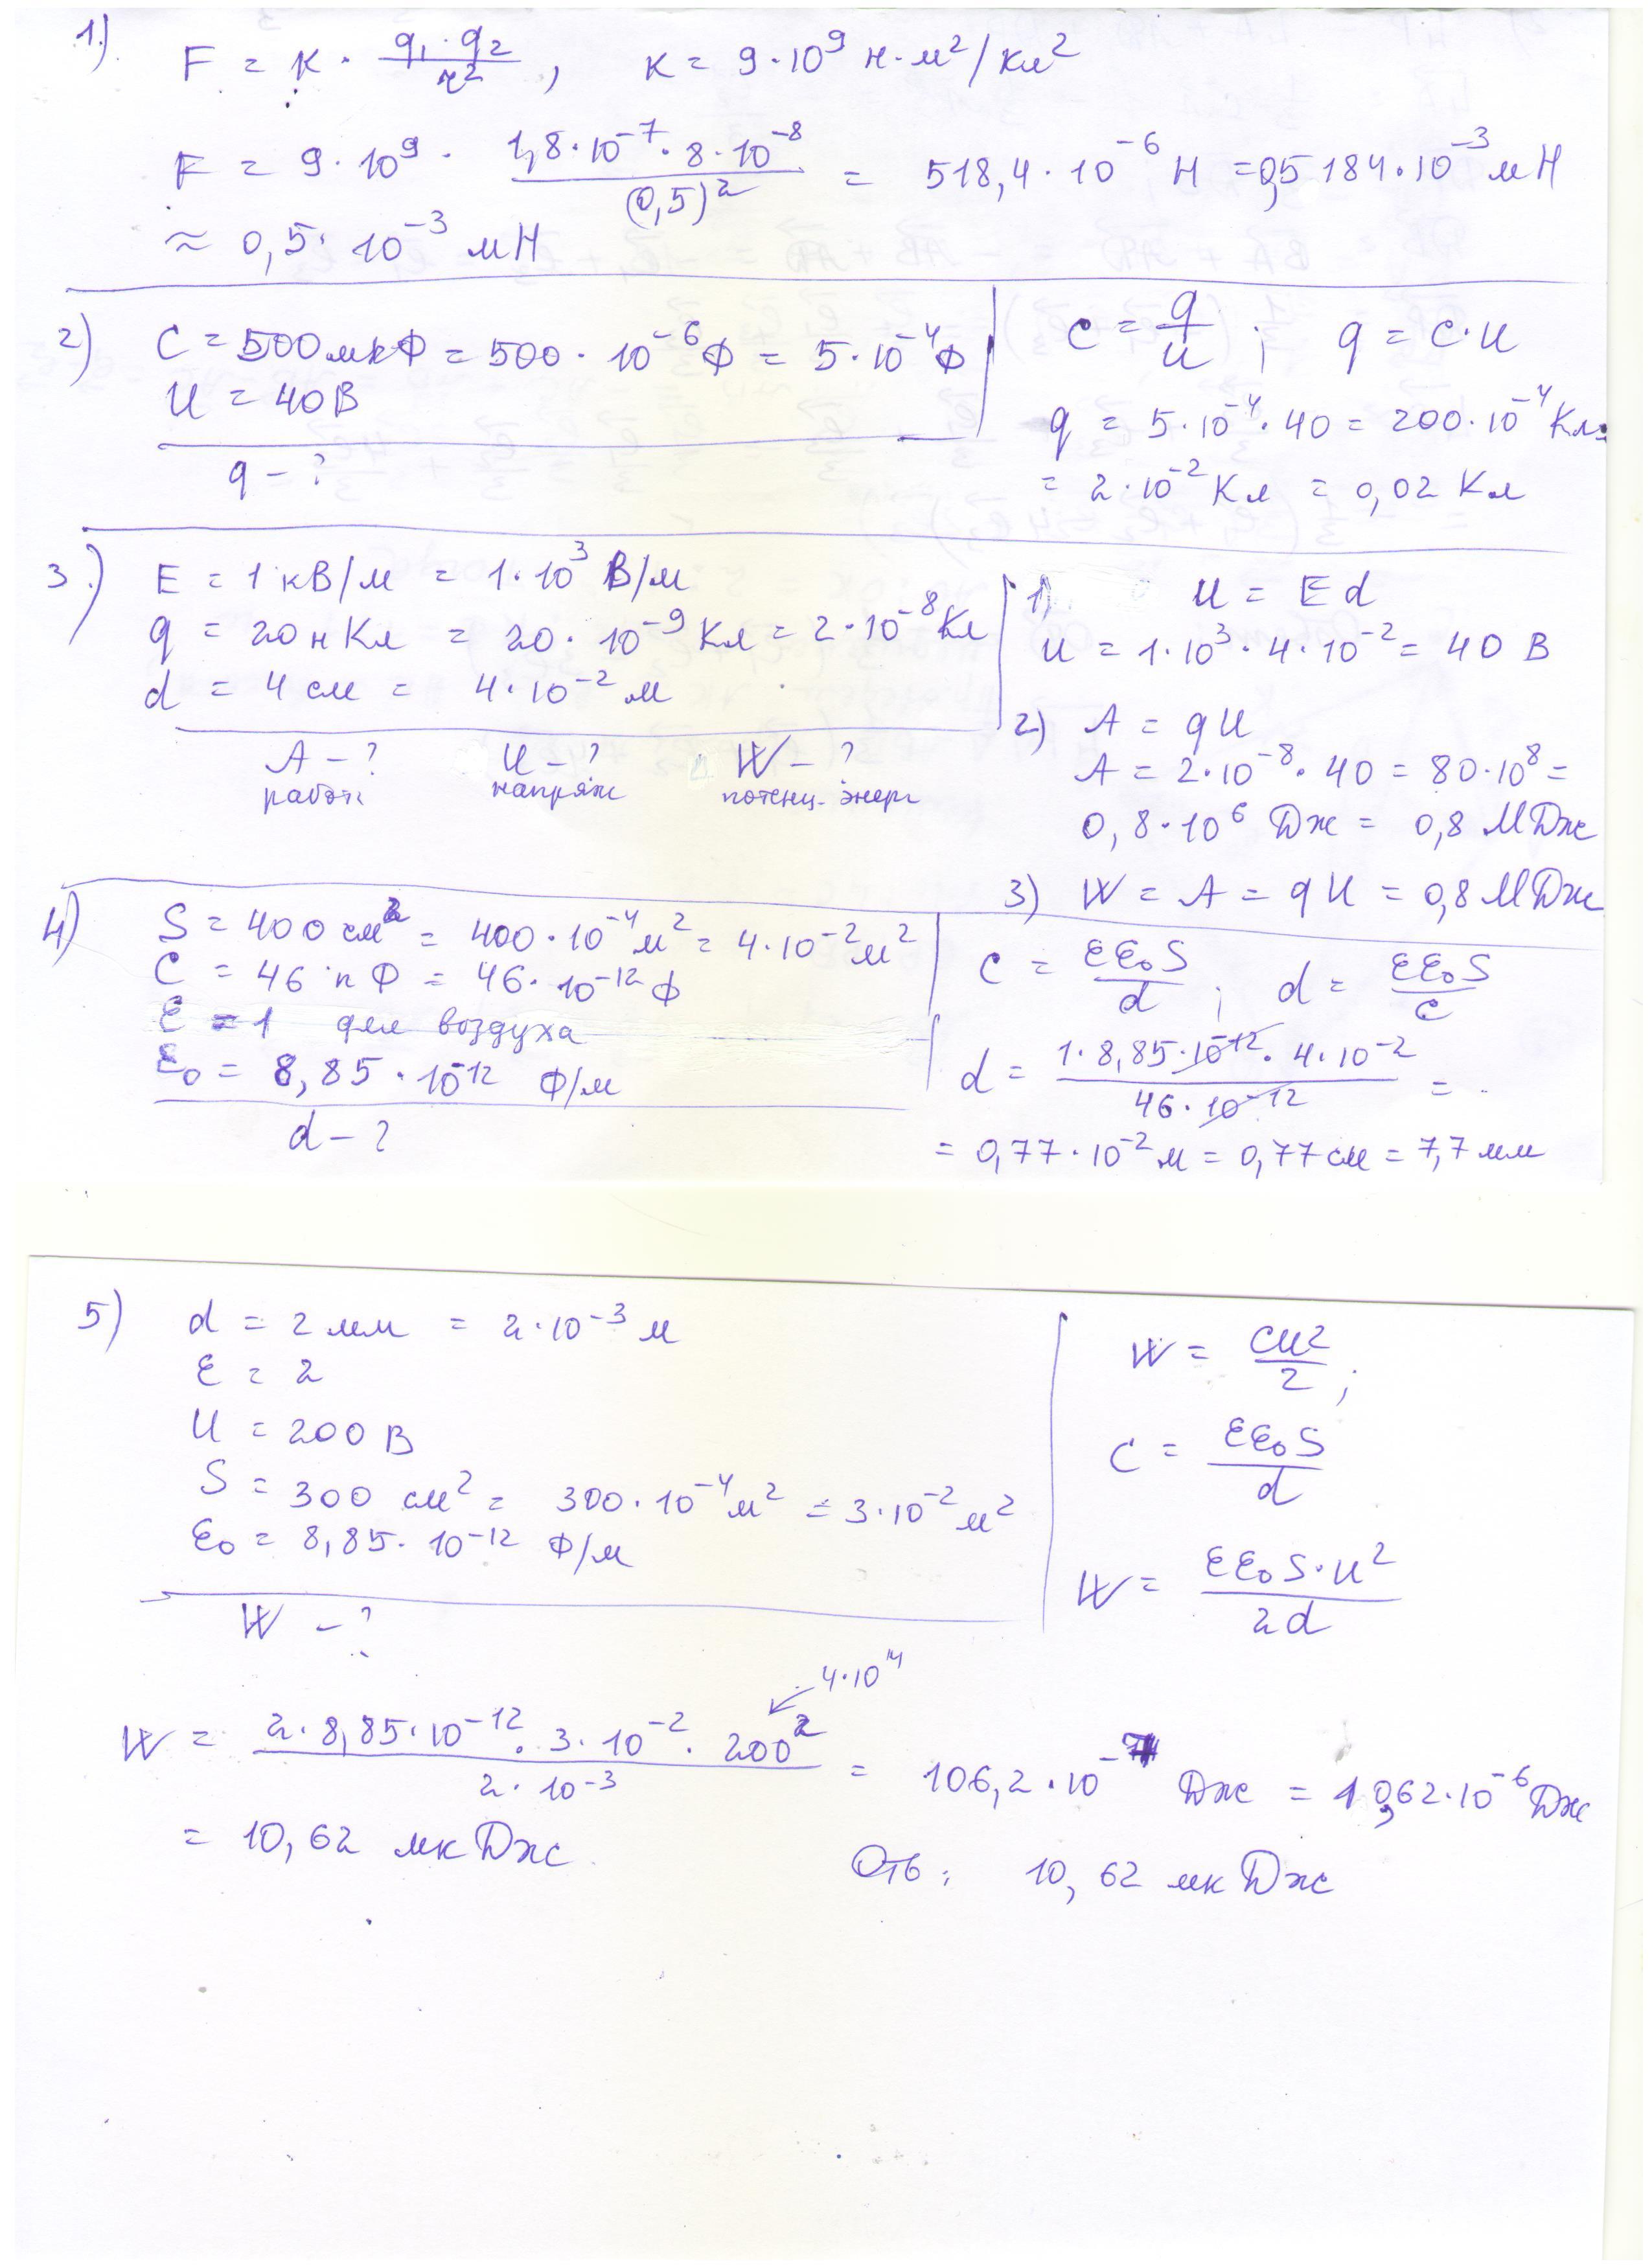 1). F = к · q₁·q₂/r², к = 9·10⁹ н·м²/кл²
F = 9·10⁹ · 1,8·10⁻⁷·8·10⁻⁸/(0,5)² = 518,4·10⁻⁶ Н = 0,5184·10⁻³ мН
≈ 0,5·10⁻³ мН
2) C = 500мкФ = 500·10⁻⁶Ф = 5·10⁻⁴Ф
U = 40В
q – ?
C = q/U ; q = C·U
q = 5·10⁻⁴·40 = 200·10⁻⁴Кл =
= 2·10⁻²Кл = 0,02 Кл
3.) E = 1 кВ/м = 1·10³ В/м
q = 20нКл = 20·10⁻⁹Кл = 2·10⁻⁸Кл
d = 4 см = 4·10⁻² м
A – ? U – ? W – ?
работ напряж потенц. энерг
1) U = Ed
U = 1·10³·4·10⁻² = 40 В
2) A = qU
A = 2·10⁻⁸·40 = 80·10⁸ =
0,8·10⁶ Дж = 0,8 МДж
3) W = A = qU = 0,8 МДж
4) S = 400 см² = 400·10⁻⁴м² = 4·10⁻²м²
C = 46 пФ = 46·10⁻¹²Ф
ε = 1 для воздуха
ε₀ = 8,85·10⁻¹² Ф/м
d – ?
C = εε₀S/d ; d = εε₀S/C
d = 1·8,85·10⁻¹²·4·10⁻²/46·10⁻¹² =
= 0,77·10⁻²м = 0,77см = 7,7мм
5) d = 2 мм = 2·10⁻³ м
ε = 2
U = 200В
S = 300 см² = 300·10⁻⁴м² = 3·10⁻²м²
ε₀ = 8,85·10⁻¹² Ф/м
W – ?
W = CU²/2 ;
C = εε₀S/d
W = εε₀S·U²/2d
4·10⁴
W = 2·8,85·10⁻¹²·3·10⁻²·200²/2·10⁻³ = 106,2·10⁻⁷ Дж = 10,62·10⁻⁶Дж
= 10,62 мкДж
Отв: 10,62 мкДж